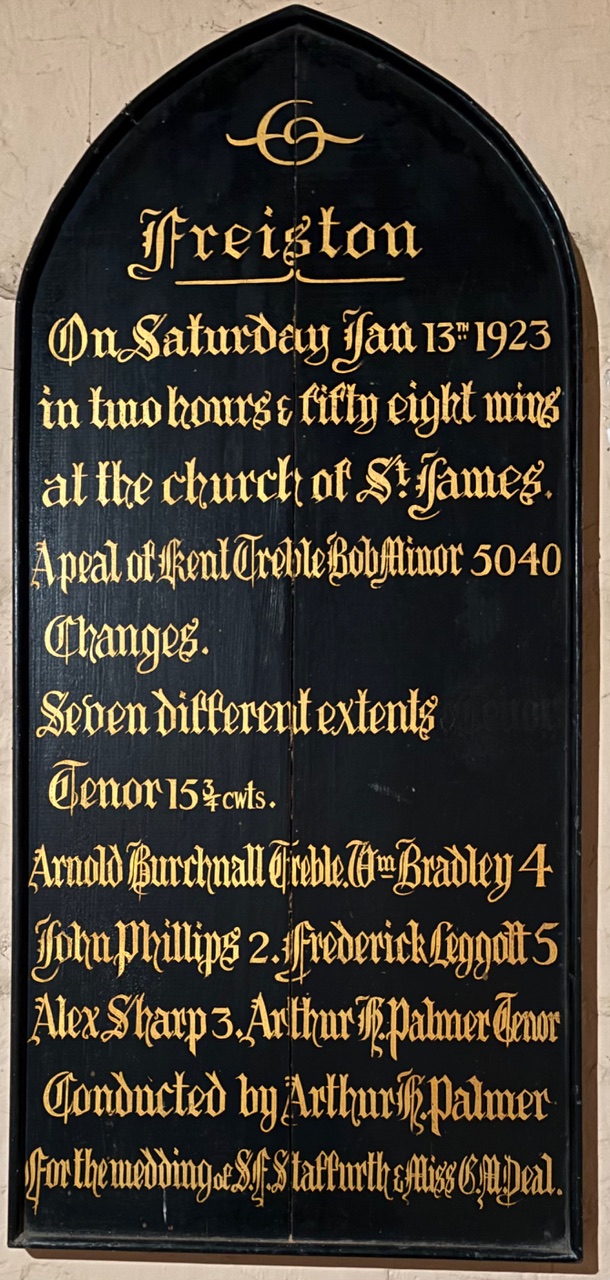 Freiston
On Saturday Jan 13TH 1923
in two hours & fifty eight mins
at the church of St. James.
A peal of Kent Treble Bob Minor 5040
Changes.
Seven different extents
Tenor 15 3/4 cwts.
Arnold Burchnall Treble. Wm Bradley 4
John Phillips 2. Frederick Leggott 5
Alex Sharp 3. Arthur H. Palmer Tenor
Conducted by Arthur H. Palmer
For the wedding of S.F. Staffurth & Miss G.M. Deal.